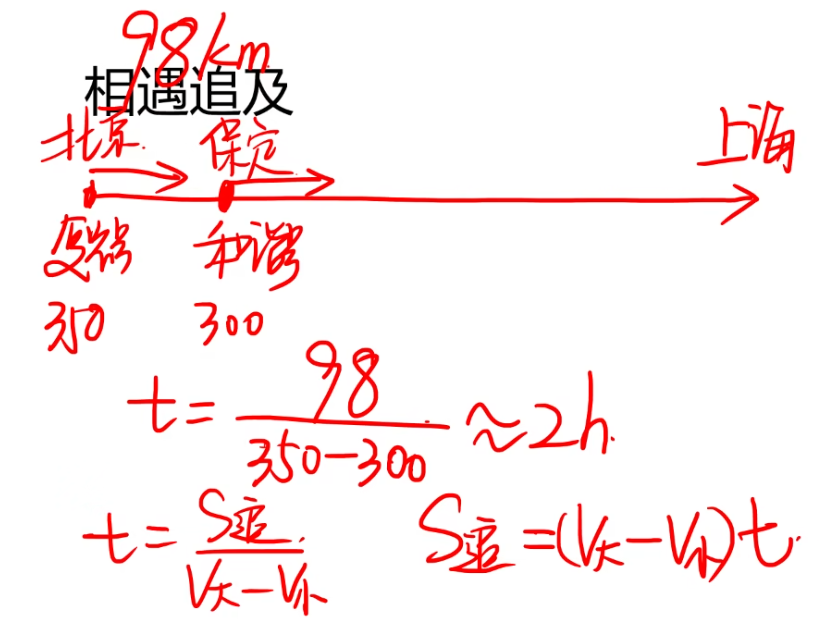 98km
相遇追及
北京 保定 上海
复兴 和谐
350 300
t = 98/(350-300) ≈ 2h.
t = S追/(V大-V小) S追=(V大-V小)t.